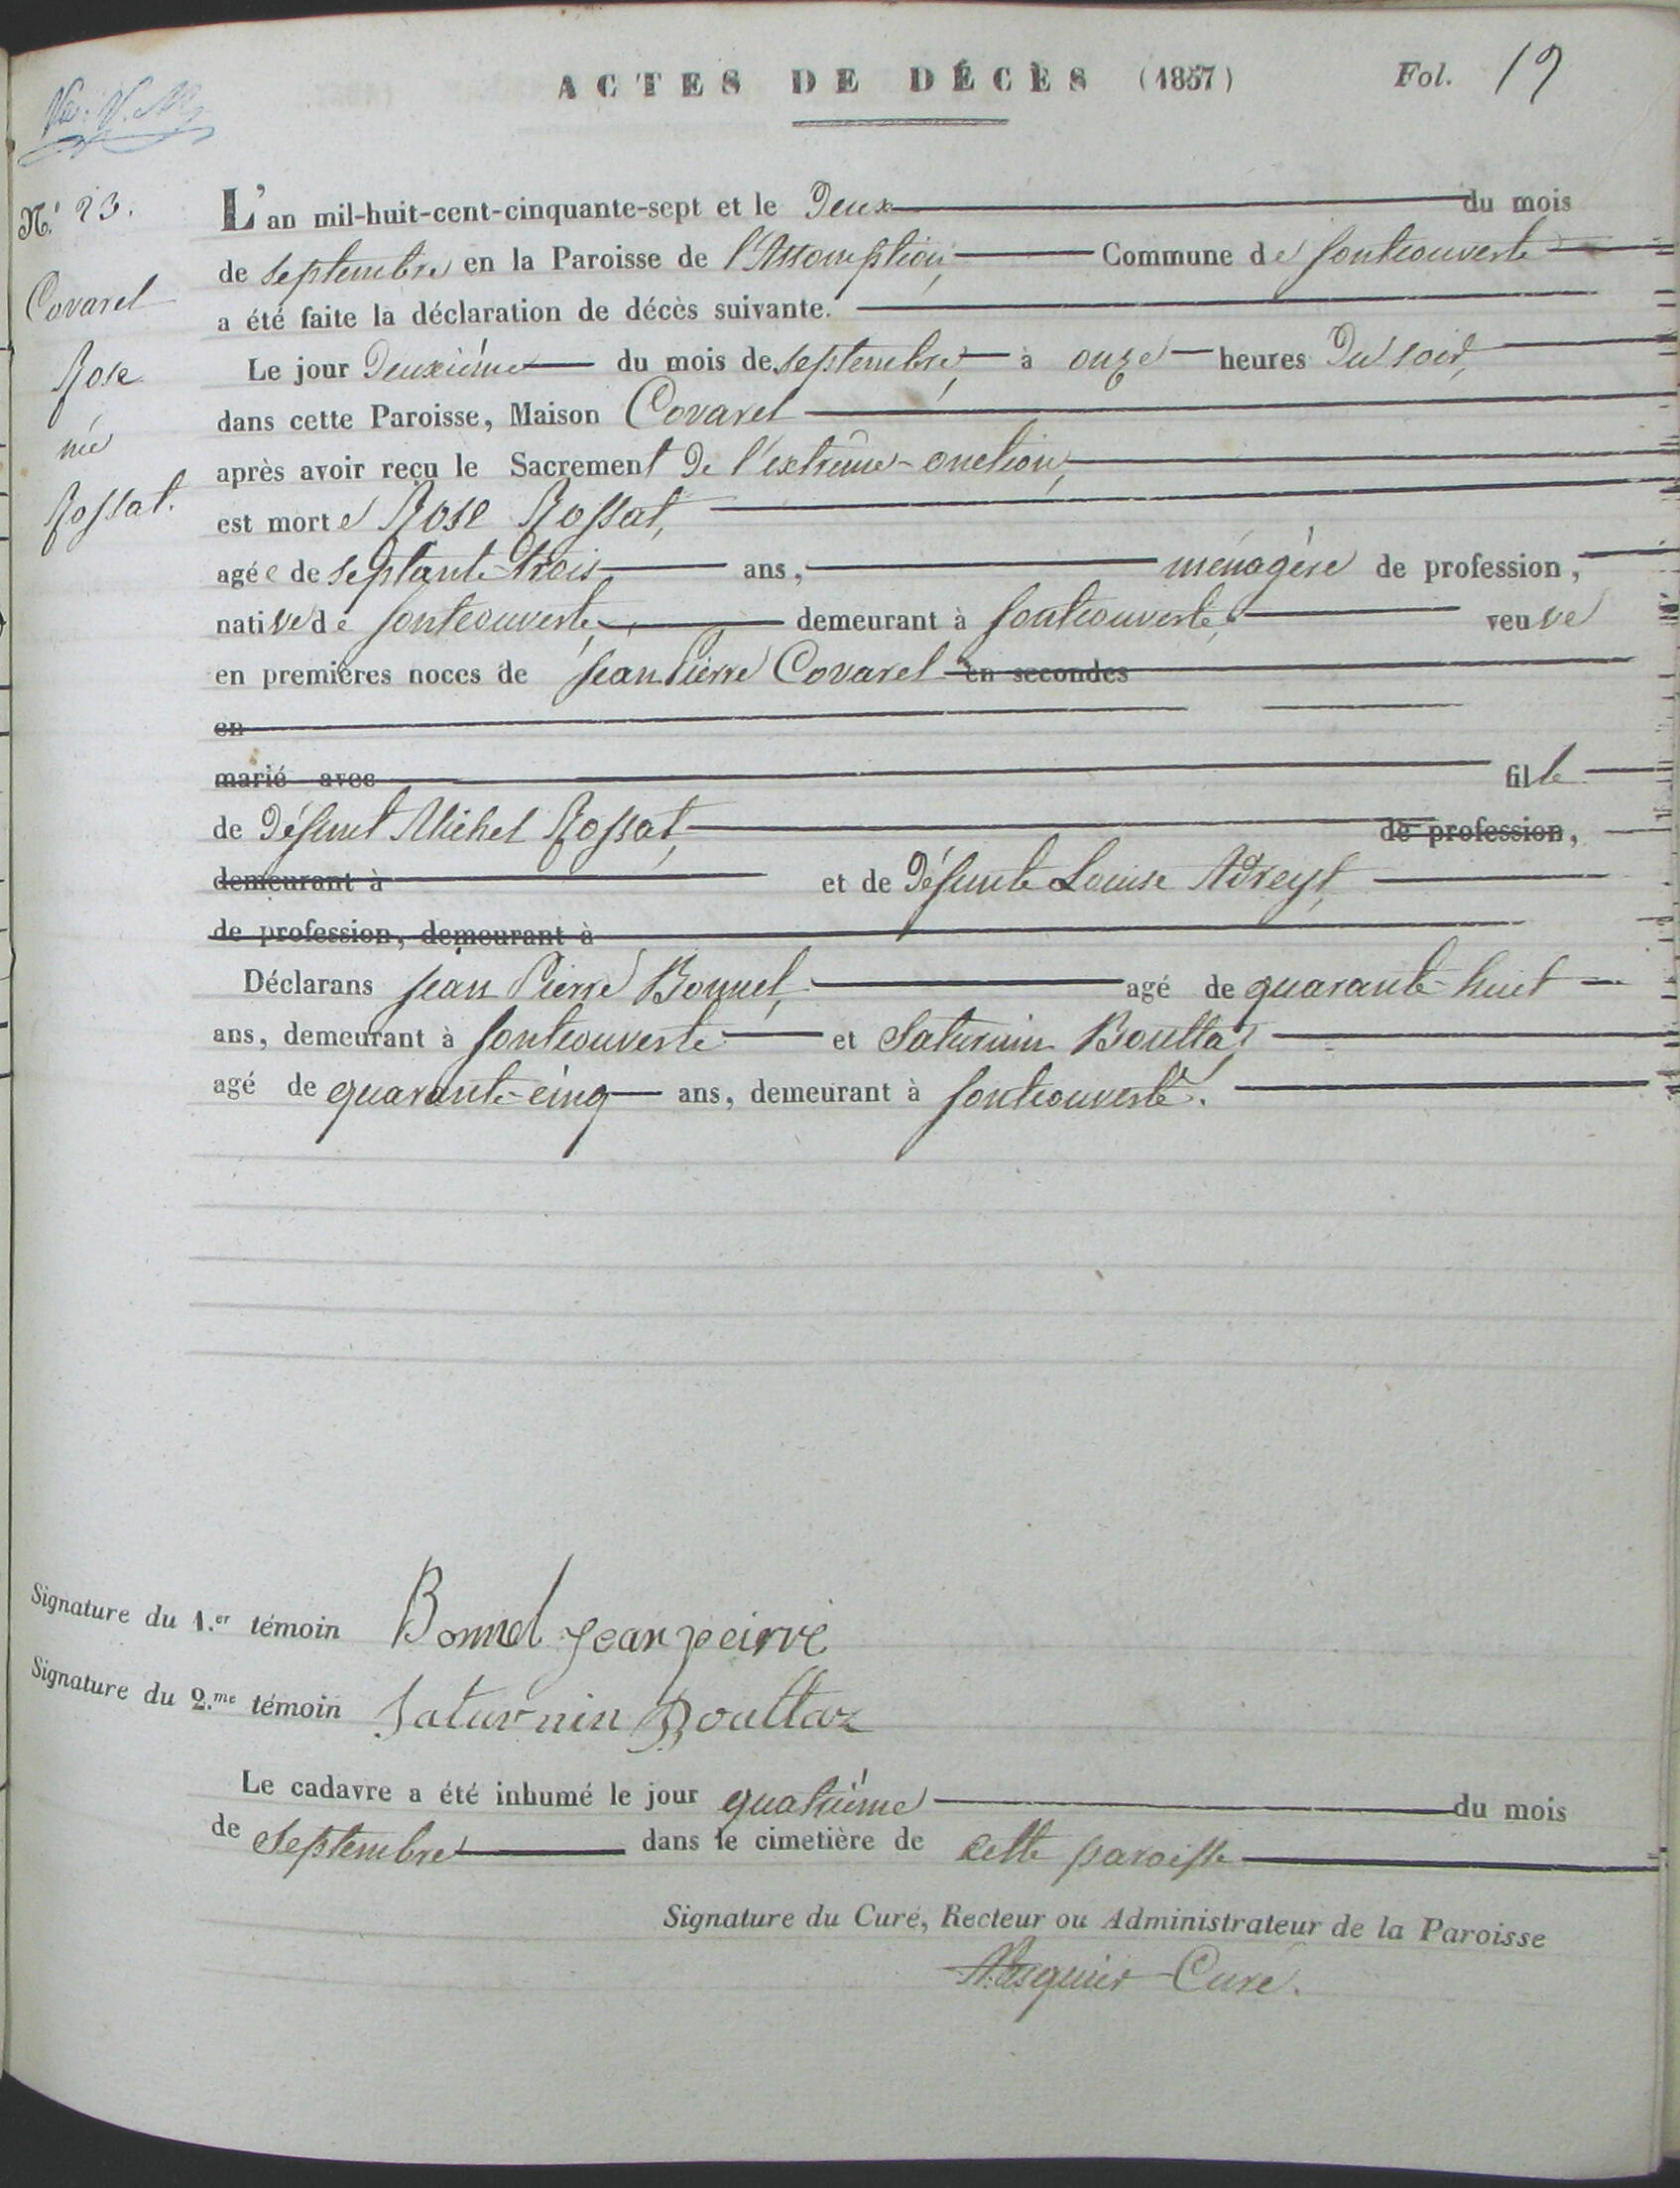 ACTES DE DÉCÈS (1857) Fol. 19
N.° 23.
Covarel
Rose
née
Rossat.
L'an mil-huit-cent-cinquante-sept et le Deux du mois
de septembre en la Paroisse de l'Assomption, Commune de fontcouverte
a été faite la déclaration de décès suivante.
Le jour Deuxième du mois de septembre, à onze heures Du soir,
dans cette Paroisse, Maison Covarel
après avoir reçu le Sacrement De l'extrême-onction,
est morte Rose Rossat,
agée de septante-trois ans, ménagère de profession,
native de fontcouverte, demeurant à fontcouverte, veuve
en premières noces de Jean Pierre Covarel en secondes
en
marié avec fille
de Défunt Michel Rossat, de profession,
demeurant à et de Défunte Louise Adreyt,
de profession, demeurant à
Déclarans Jean Pierre Bonnel, agé de quarante-huit
ans, demeurant à fontcouverte et Saturnin Bouttaz
agé de quarante-cinq ans, demeurant à fontcouverte.
Signature du 1.er témoin Bonnel Jean peirre
Signature du 2.me témoin Saturnin Bouttaz
Le cadavre a été inhumé le jour quatrième du mois
de septembre dans le cimetière de cette paroisse
Signature du Curé, Recteur ou Administrateur de la Paroisse
Curé.